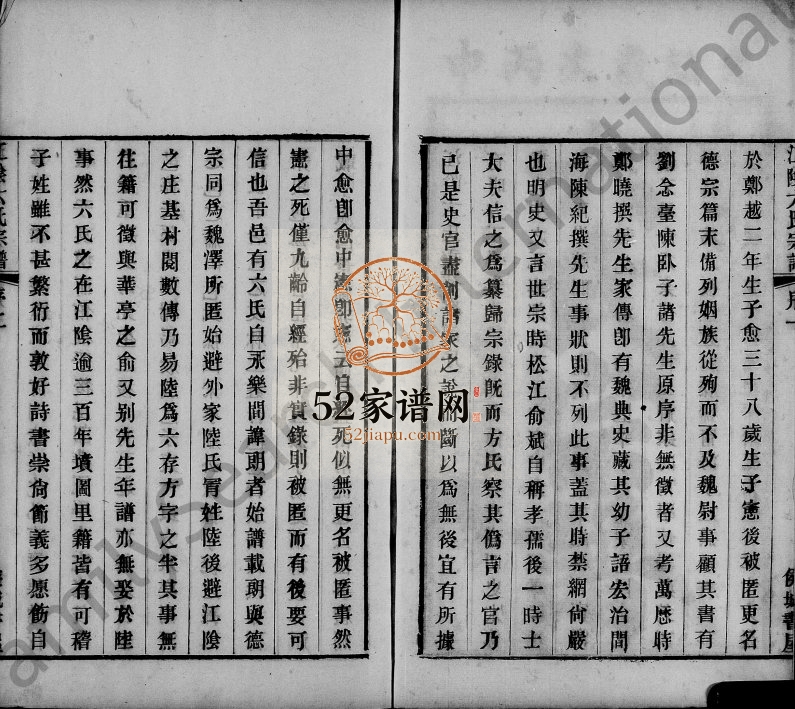 於鄭越二年生子愈三十八歲生子憲後被匿更名
德宗篇末備列姻族從殉而不及魏尉事顧其書有
劉念臺陳臥子諸先生原序非無徵者又考萬歷時
鄭曉撰先生家傳卽有魏典史藏其幼子語宏治間
海陳紀撰先生事狀則不列此事蓋其時禁網尙嚴
也明史又言世宗時松江俞斌自稱孝孺後一時士
大夫信之爲纂歸宗錄旣而方氏察其僞言之官乃
已是史官盡 諸家之 斷以爲無後宜有所據
中愈卽愈中 卽 云自 死似無更名被匿事然
憲之死僅九齡自經殆非實錄則被匿而有後要可
信也吾邑有六氏自永樂間諱朗者始譜載朗與德
宗同爲魏澤所匿始避外家陸氏冐姓陸後避江陰
之庄基村閱數傳乃易陸爲六存方字之半其事無
往籍可徵與華亭之俞又别先生年譜亦無娶於陸
事然六氏之在江陰逾三百年墳圖里籍皆有可稽
子姓雖不甚繁衍而敦好詩書崇尙節義多愿飭自
52家谱网
52jiapu.com
familysearch international